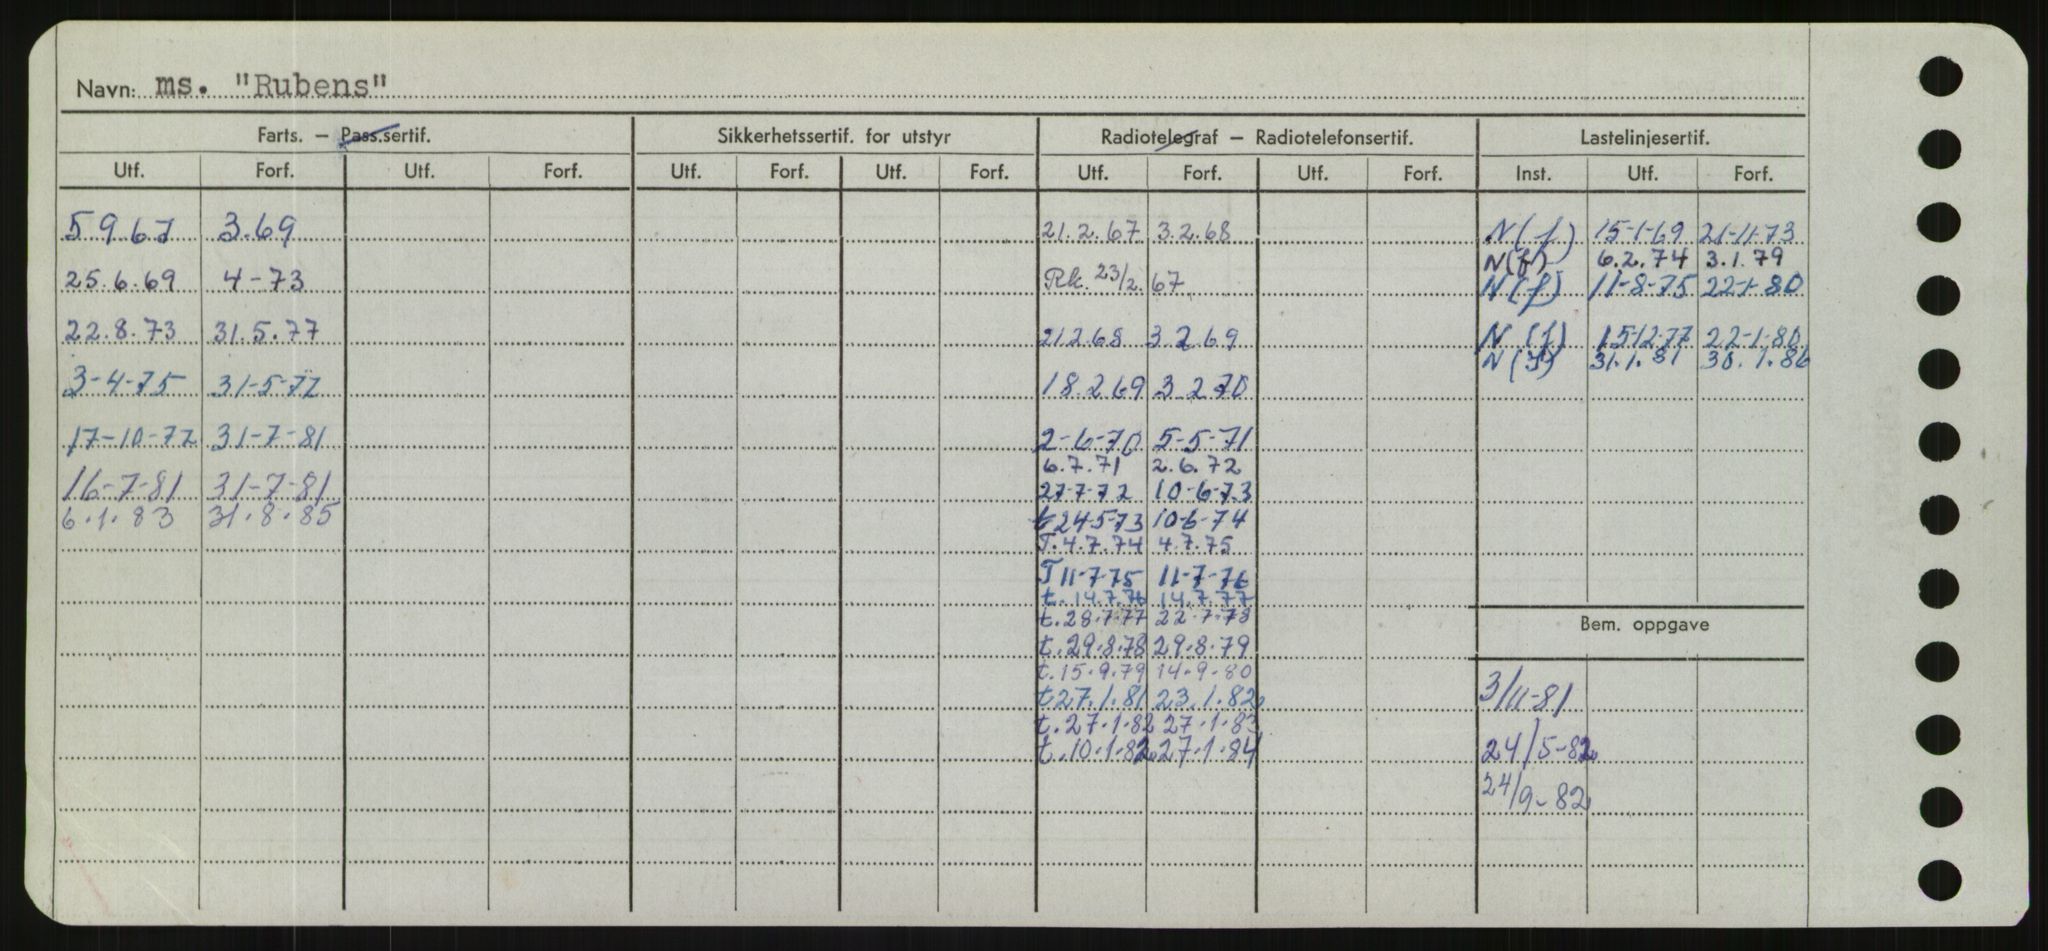 Navn: ms. "Rubens"
Farts. — Pass.sertif. Sikkerhetssertif. for utstyr Radiotelegraf — Radiotelefonsertif. Lastelinjesertif.
Utf. Forf. Utf. Forf. Utf. Forf. Utf. Forf. Utf. Forf. Utf. Forf. Inst. Utf. Forf.
5 9 67 3.69 21.2.67 3.2.68 N(f) 15-1-69 21-11-73
N(f) 6.2.74 3.1.79
25.6.69 4-73 Rk. 23/2.67 N(f) 11-8-75 22-1-80
22.8.73 31.5.77 21268 3269 N(f) 15-12-77 22-1-80
N(f) 31.1.81 30.1.86
3-4-75 31-5-77 18.269 3.270
17-10-77 31-7-81 2-6-70 5-5-71
6.7.71 2.6.72
16-7-81 31-7-81 27-7-72 10-6-73
6.1.83 31.8.85 t 24-5-73 10-6-74
T.4.7.74 4.7.75
T 11-7-75 11-7-76
t.14.7.76 14.7.77
t.28.7.77 22.7.78 Bem. oppgave
t.29.8.78 29.8.79
t.15.9.79 14.9.80
t 27.1.81 23.1.82 3/11-81
t.27.1.82 27.1.83
t.10.1.82 27.1.84 24/5-82
24/9-82